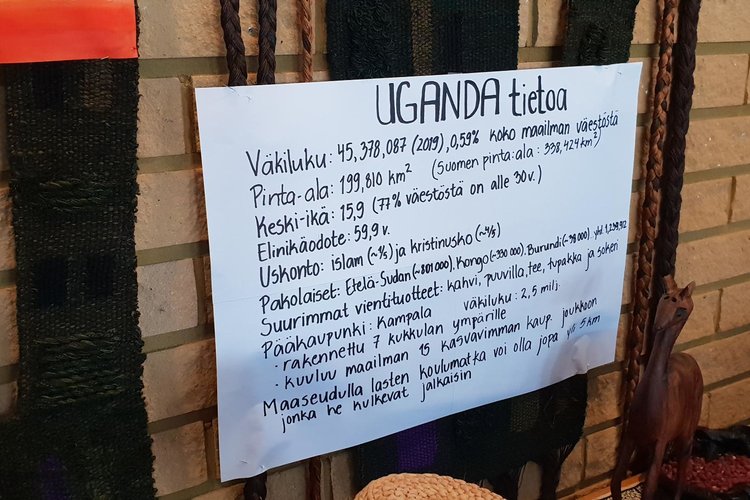 UGANDA tietoa
Väkiluku: 45,378,087 (2019), 0,59% koko maailman väestöstä
Pinta-ala: 199,810 km² (Suomen pinta:ala: 338,424 km²)
Keski-ikä: 15,9 (77% väestöstä on alle 30v.)
Elinikäodote: 59,9 v.
Uskonto: islam (~⅕) ja kristinusko (~⅘)
Pakolaiset: Etelä-Sudan (~801000), Kongo (~330000), Burundi (~38000). yht.
Suurimmat vientituotteet: kahvi, puuvilla, tee, tupakka ja sokeri
Pääkaupunki: Kampala väkiluku: 2,5 milj.
· rakennettu 7 kukkulan ympärille
· kuuluu maailman 15 kasvavimman kaup. joukkoon
Maaseudulla lasten koulumatka voi olla jopa yli 5 km
jonka he kulkevat jalkaisin